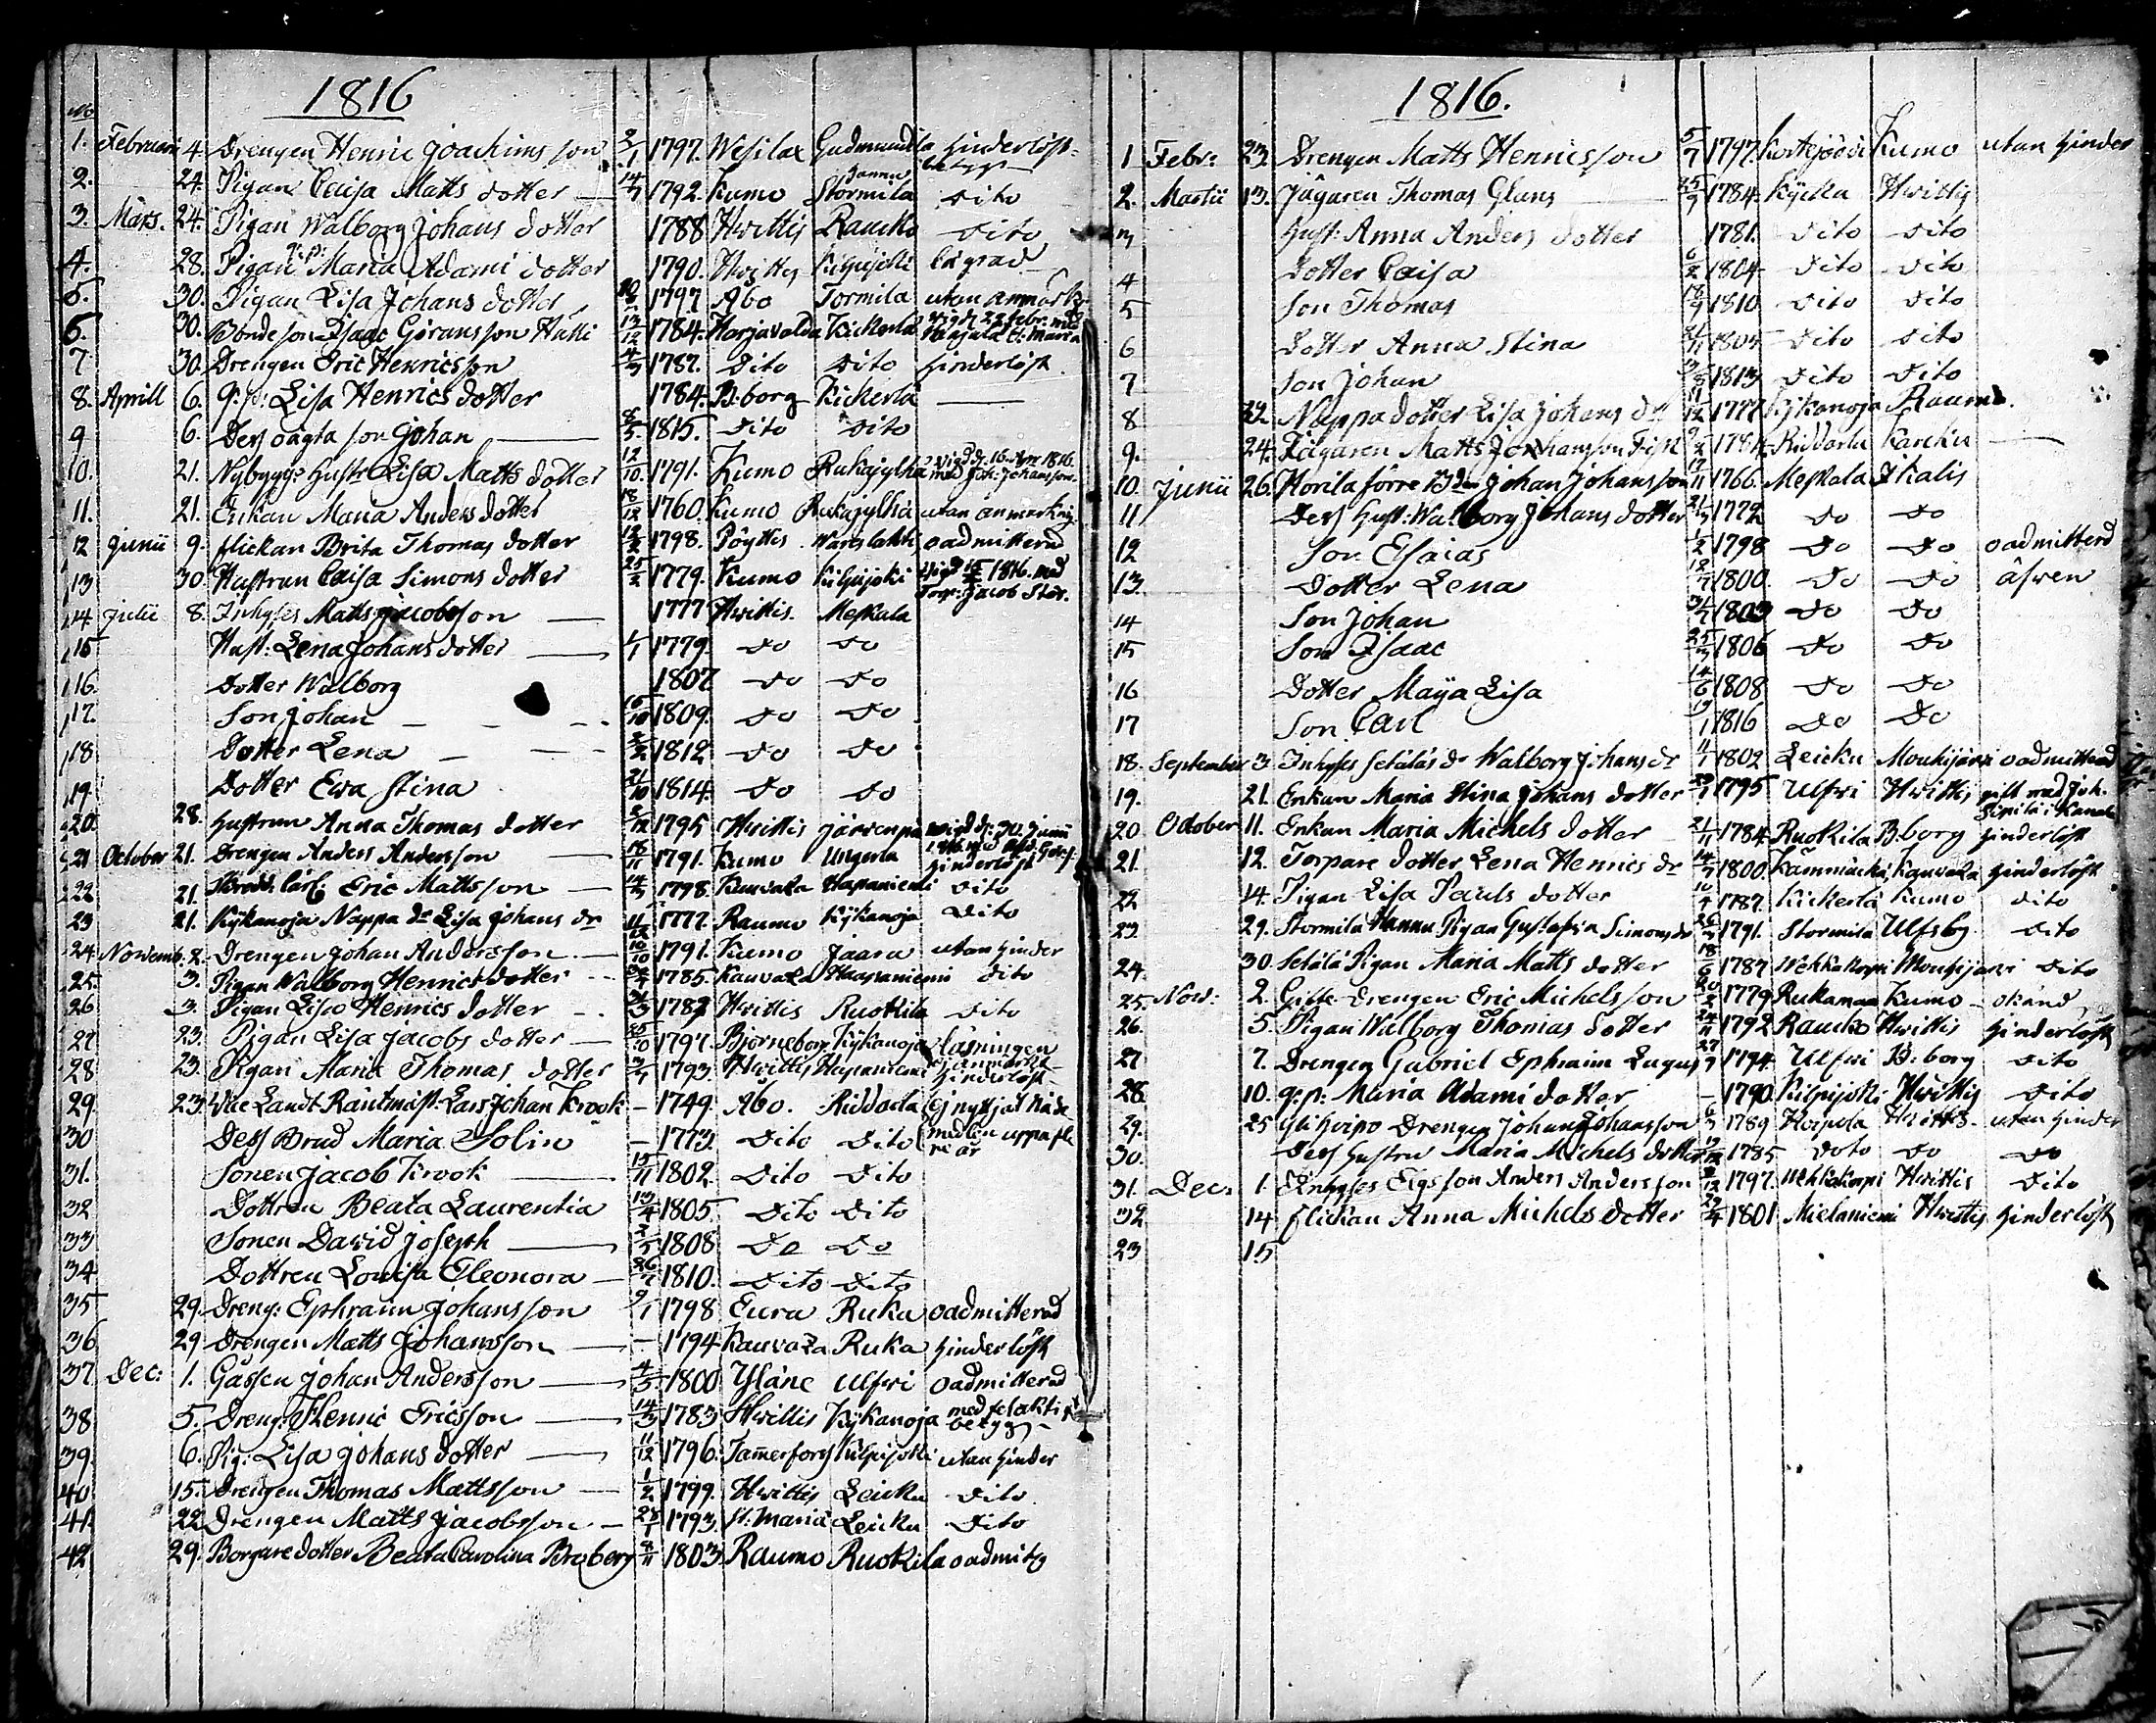 1816
No
1. Februari 4. Drengen Henric Joachims son 2/1 1797. Wesilax Gudmundila hinderlöst betyg
2. 24. Pigan Caisa Matts dotter 14/7 1792. Kumo Stormila Sannu dito
3. Mars. 24. Pigan Walborg Johans dotter 1788 Hvittis Raucko dito
4. 28. Pigan q: p: Maria Adami dotter 1790. Hvittis Kilpijocki
5. 30. Pigan Lisa Johans dotter 1797 Åbo Tormila utan anmärk
6. 30. Bonde son Isaac Göransson Hatti 13/12 1784. Harjavalda Kickerlä vigd 22 febr: med
7 30. Drengen Eric Henricsson 4/3 1787. dito dito hinderlöst
8. Aprill 6. q: p: Lisa Henrics dotter 1784. B:borg Kickerlä
9 6. Dess oägta son Johan 8/5 1815. dito dito
10. 21. Nybygg: hustr: Lisa Matts dotter 12/10 1791. Kumo Rukajylhä vigd d. 16 Apr 1816. med Joh: Johansson
11. 21. Enkan Maria Anders dotter 18/12 1760. Kumo Rukajylhä utan anmärkng
12 Junii 9. flickan Brita Thomas dotter 12/2 1798. Pöyttis Wareslahti oadmitterad
13 30. Hustrun Caisa Simons dotter 25/2 1779. Kumo Kilpijoki vigd 1816. med Torp: Jacob Stor.
14 Julii 8. Inhyses Matts Jacobsson 1777 Hvittis. Meskala
15 Hust: Lena Johans dotter 1/1 1779. do do
16. Dotter Walborg 1807 do do
17. Son Johan 15/10 1809. do do
18 Dotter Lena 2/2 1812 do do
19 Dotter Ewa Stina 21/10 1814. do do
20. 28. Hustrun Anna Thomas dotter 1795 Hvittis Järvenpä vigd d: 30 Junii 1816. med
21 October 21. Drengen Anders Andersson 18/11 1791. Kumo Ungerla hinderlöst
22 21. Skredd. lärl. Eric Mattsson 14/3 1798. Kauvaza Hapaniemi dito
23 21. Kykanoja Nappa dr Lisa Johans dr 11/12 1777. Raumo Kykanoja dito
24. Novemb: 2. Drengen Johan Andersson 10/10 1791. Kumo Jaara utan hinder
25. 3. Pigan Walborg Henrics dotter 1785. Kauvaza Haapaniemi dito
26 3. Pigan Lisa Henrics dotter 1787 Hvittis Ruokila dito
27 23. Pigan Lisa Jacobs dotter 25/10 1797. Björneborg Kykanoja läsningen
28 23. Pigan Maria Thomas dotter 1793. Hvittis Hapaniemi hinderlöst
29. 23. Vice Landt Räntmäst. Lars Johan Krook 1749. Åbo. Riddarla Ej nyttjat Nåde
30 Dess Brud Maria Solin 1773. dito dito medlen uppå fle re år
31. Sonen Jacob Krook 15/11 1802. dito dito
32 Dottren Beata Laurentia 13/4 1805. dito dito
33 Sonen David Joseph 2/5 1808 do do
34 Dottren Lovisa Eleonora 26/7 1810. dito dito
35 29. Dreng: Ephraim Johansson 9/1 1798 Eura Ruka oadmitterad
36 29 Drengen Matts Johansson 1794 Kauvaza Ruka hinderlöst
37 Dec: 1. Gåssen Johan Andersson 4/5 1800 Yläne Ulfvi oadmitterad
38 5. Dreng: Henric Ericsson 14/3 1783 Hvittis Kykanoja med felaktigt betyg
39. 6. Pig: Lisa Johans dotter 11/12 1796. Tamerfors Kilpijoki utan hinder
40 15. Drengen Thomas Mattsson 1/2 1799. Hvittis Leicku dito
41. 22 Drengen Matts Jacobsson 28/1 1793. St. Maria Leicku dito
42 29. Borgare dotter Beata Carolina Broberg 8/11 1803. Raumo Ruokila oadmitt
1816.
1 Febr: 23. Drengen Matts Henricsson 5/7 1797. Kortejocki Kumo utan hinder
2. Martii 13. Jägaren Thomas Glans 25/9 1784. Kyckla Hvittis
3 Hust: Anna Anders dotter 1781. dito dito
4 Dotter Caisa 6/2 1804. dito dito
5 Son Thomas 18/9 1810 dito dito
6 Dotter Anna Stina 1805 dito dito
7 Son Johan 1813 dito dito
8 22. Nappa dotter Lisa Johans dr 11/12 1777 Kykanoja Raumo.
9. 24. Jägaren Matts Johansson Fisk 1784. Riddarla Karcku
10. Junii 26. Horila förre Bden Johan Johansson 17/11 1766. Meskala Ikalis
11 Dess Hust: Walborg Johans dotter 1772 do do
12 Son Esaias 1798 do do oadmitterd
13. Dotter Lena 1800. do do äfven
14 Son Johan 1803 do do
15 Son Isaac 25/3 1806 do do
16 Dotter Maja Lisa 14/6 1808 do do
17 Son Carl 19/1 1816 do do
18. September 3. Inhyses Setäläs dr Walborg Johans dr 11/1 1802 Leicku Mouhijärvi oadmitterad
19. 21. Enkan Maria Stina Johans dotter 1795 Ulfvi Hvittis gift med Joh. Sipilä i Kanala
20 October 11. Enkan Maria Michels dotter 21/11 1784. Ruokila B:borg hinderlöst
21. 12. Torpare dotter Lena Henrics dr 14/7 1800. Kämmäckä Kauvaza hinderlöst
22 14. Pigan Lisa Pauls dotter 10/4 1787. Kickerlä Kumo dito
23 29. Stormila Hannu Pigan Gustafva Simonsdr 26/3 1791. Stormila Ulfsby dito
24. 30. Setälä Pigan Maria Matts dotter 18/6 1787 Wehkakorpi Mouhijärvi dito
25. Nov: 2. Gifte Drengen Eric Michelsson 1779. Rukamaa Kumo okänd
26. 5. Pigan Walborg Thomas dotter 24/11 1792 Raucko Hvittis hinderlöst
27 7. Drengen Gabriel Ephraim Lagus 27/7 1794. Ulfvi B:borg dito
28 10. q: p: Maria Adami dotter 1790. Kilpijoki Hvittis dito
29. 25 Yli Hvipo Drengen Johan Johansson 6/3 1789 Horjula Hvittis. utan hinder
30. Dess hustru Maria Michels dotter 1785 doto do do
31. Dec: 1. Inhyses Eigs son Anders Andersson 1797. Wehkakorpi Hvittis dito
32 14 flickan Anna Michels dotter 29/4 1801 Mielaniemi Hvittis hinderlöst
23 15